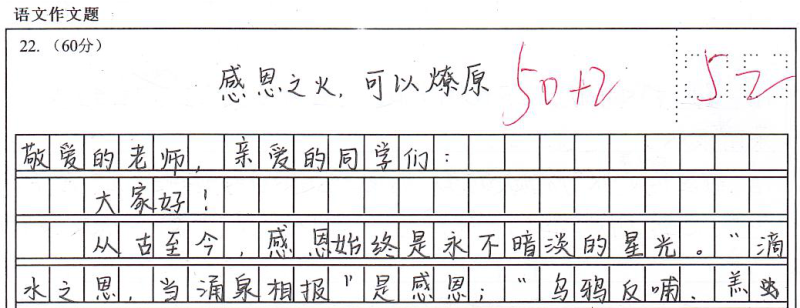 语文作文题
22. （60分）
感恩之火，可以燎原 50+2 52
敬爱的老师，亲爱的同学们：
大家好！
从古至今，感恩始终是永不暗淡的星光。“滴
水之恩，当涌泉相报”是感恩；“乌鸦反哺，羔